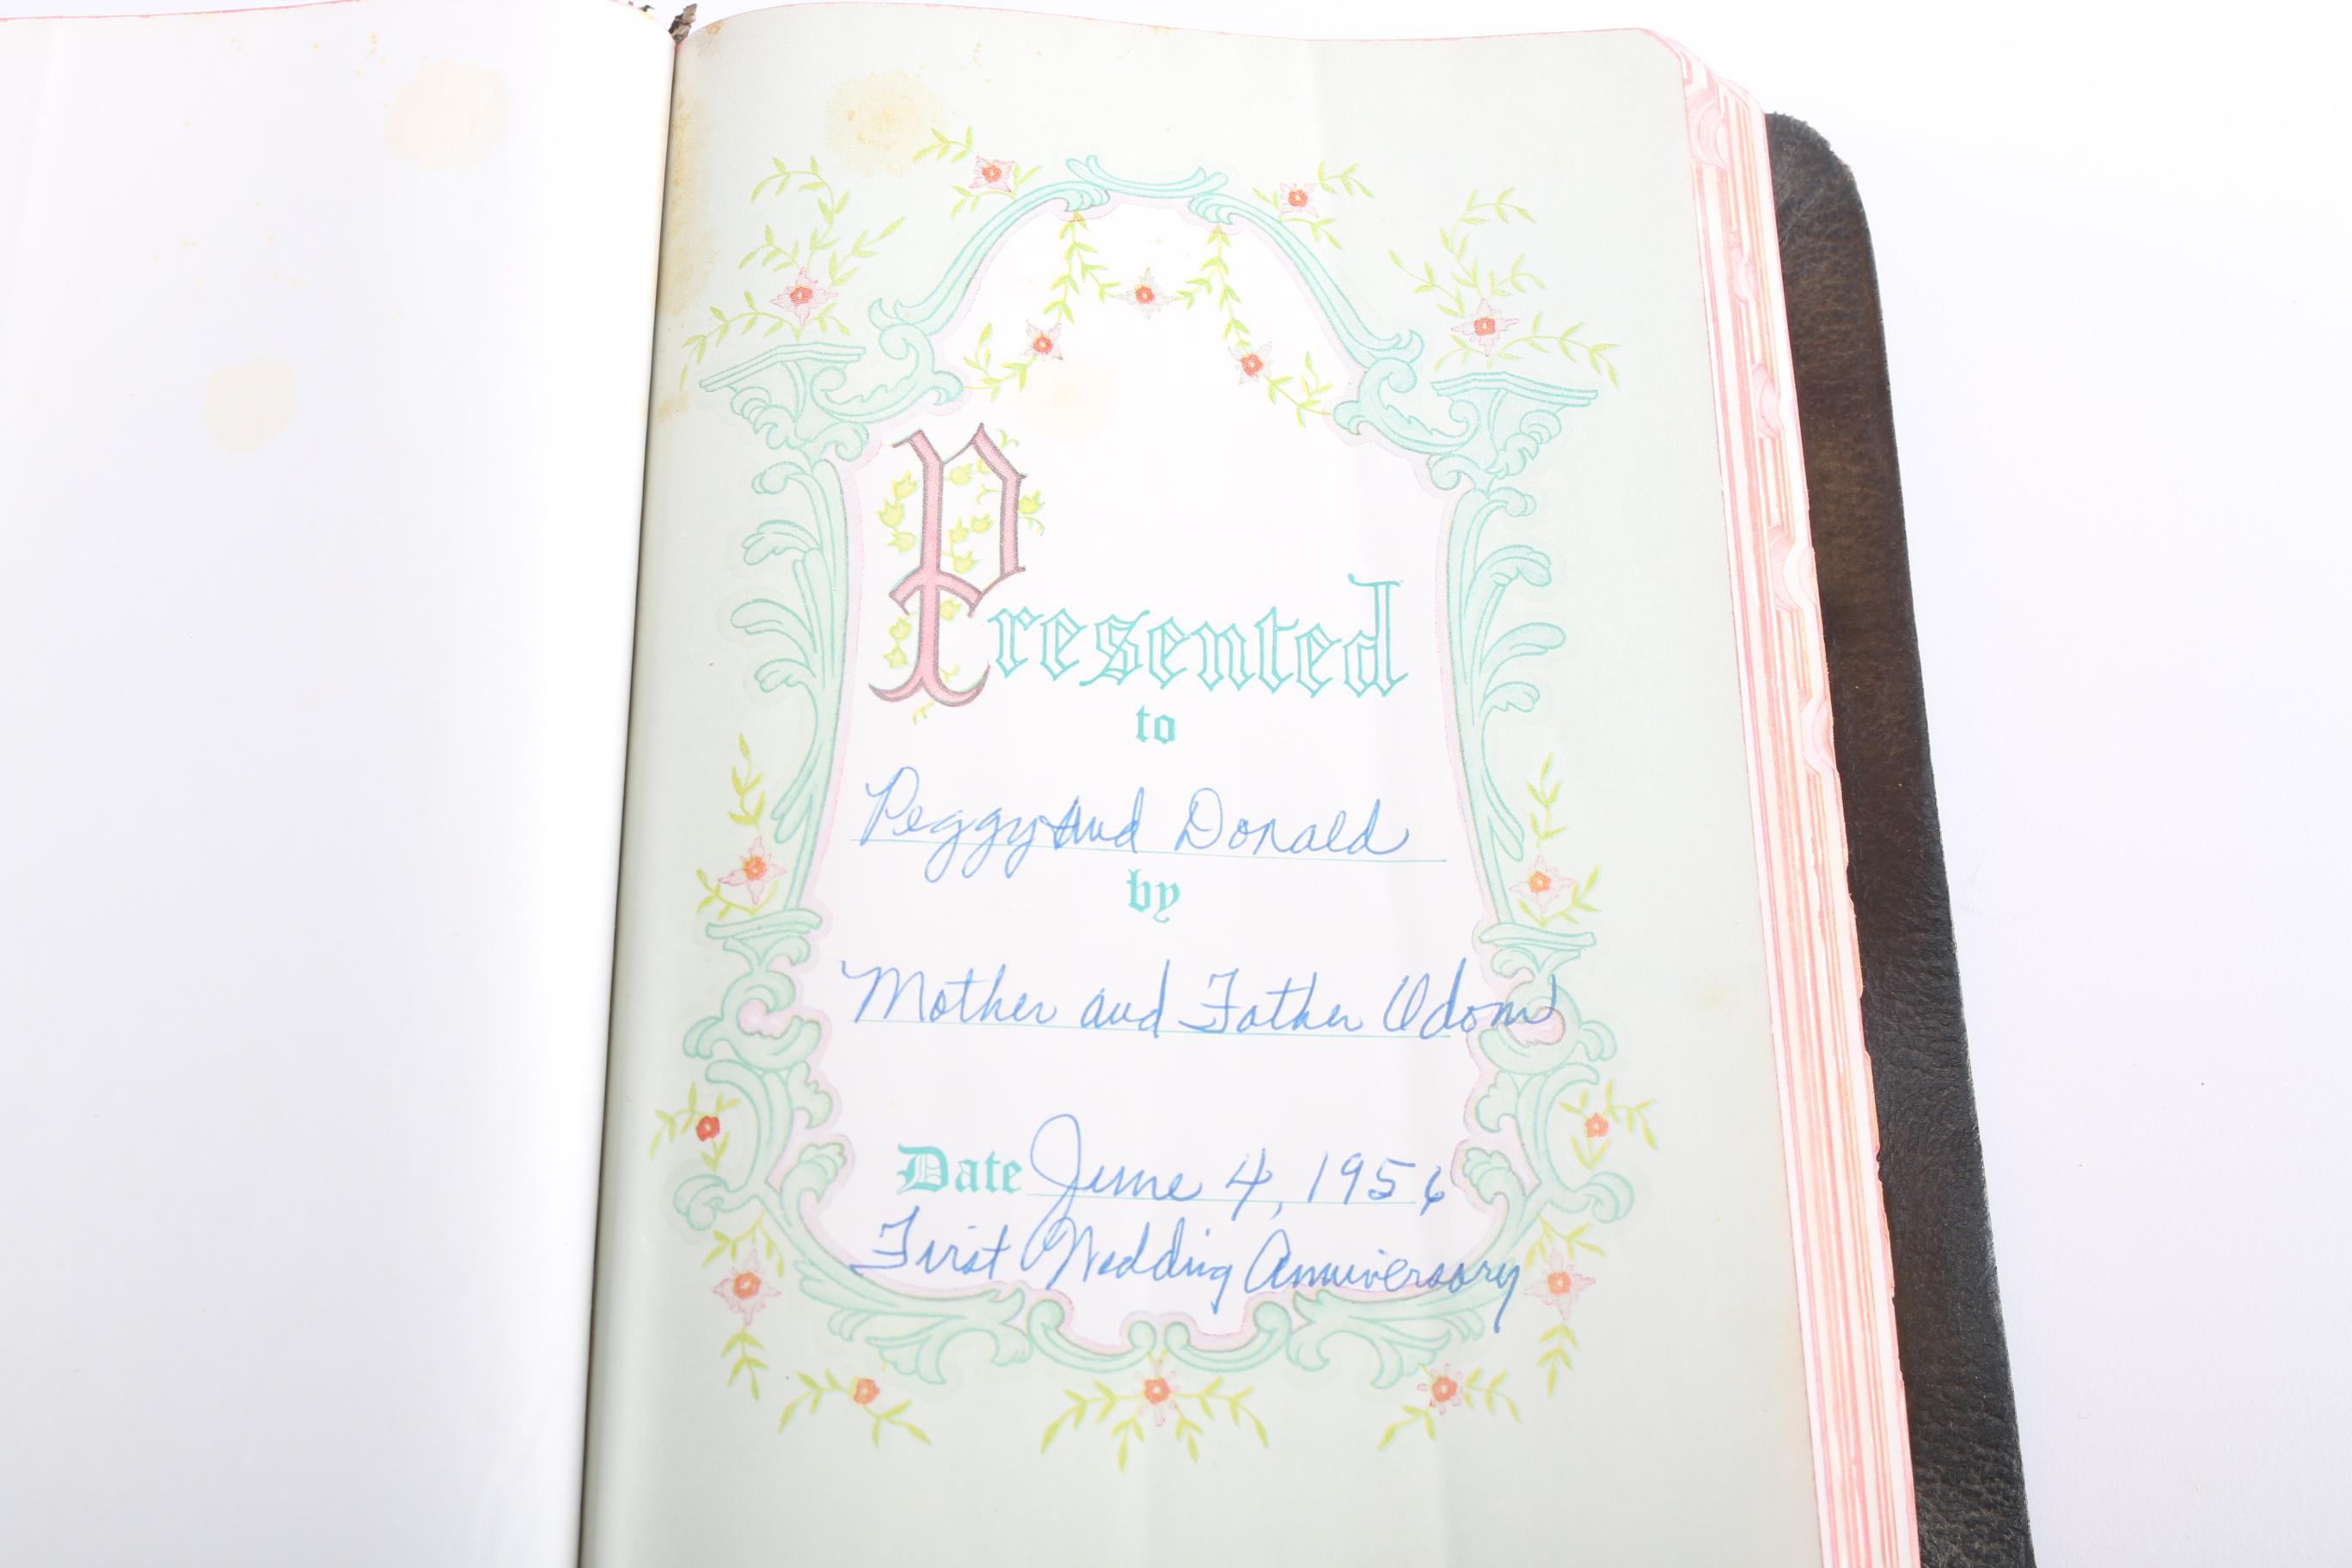 Presented
to
Peggy and Donald
by
Mother and Father Odom
Date June 4, 1956
First Wedding Anniversary